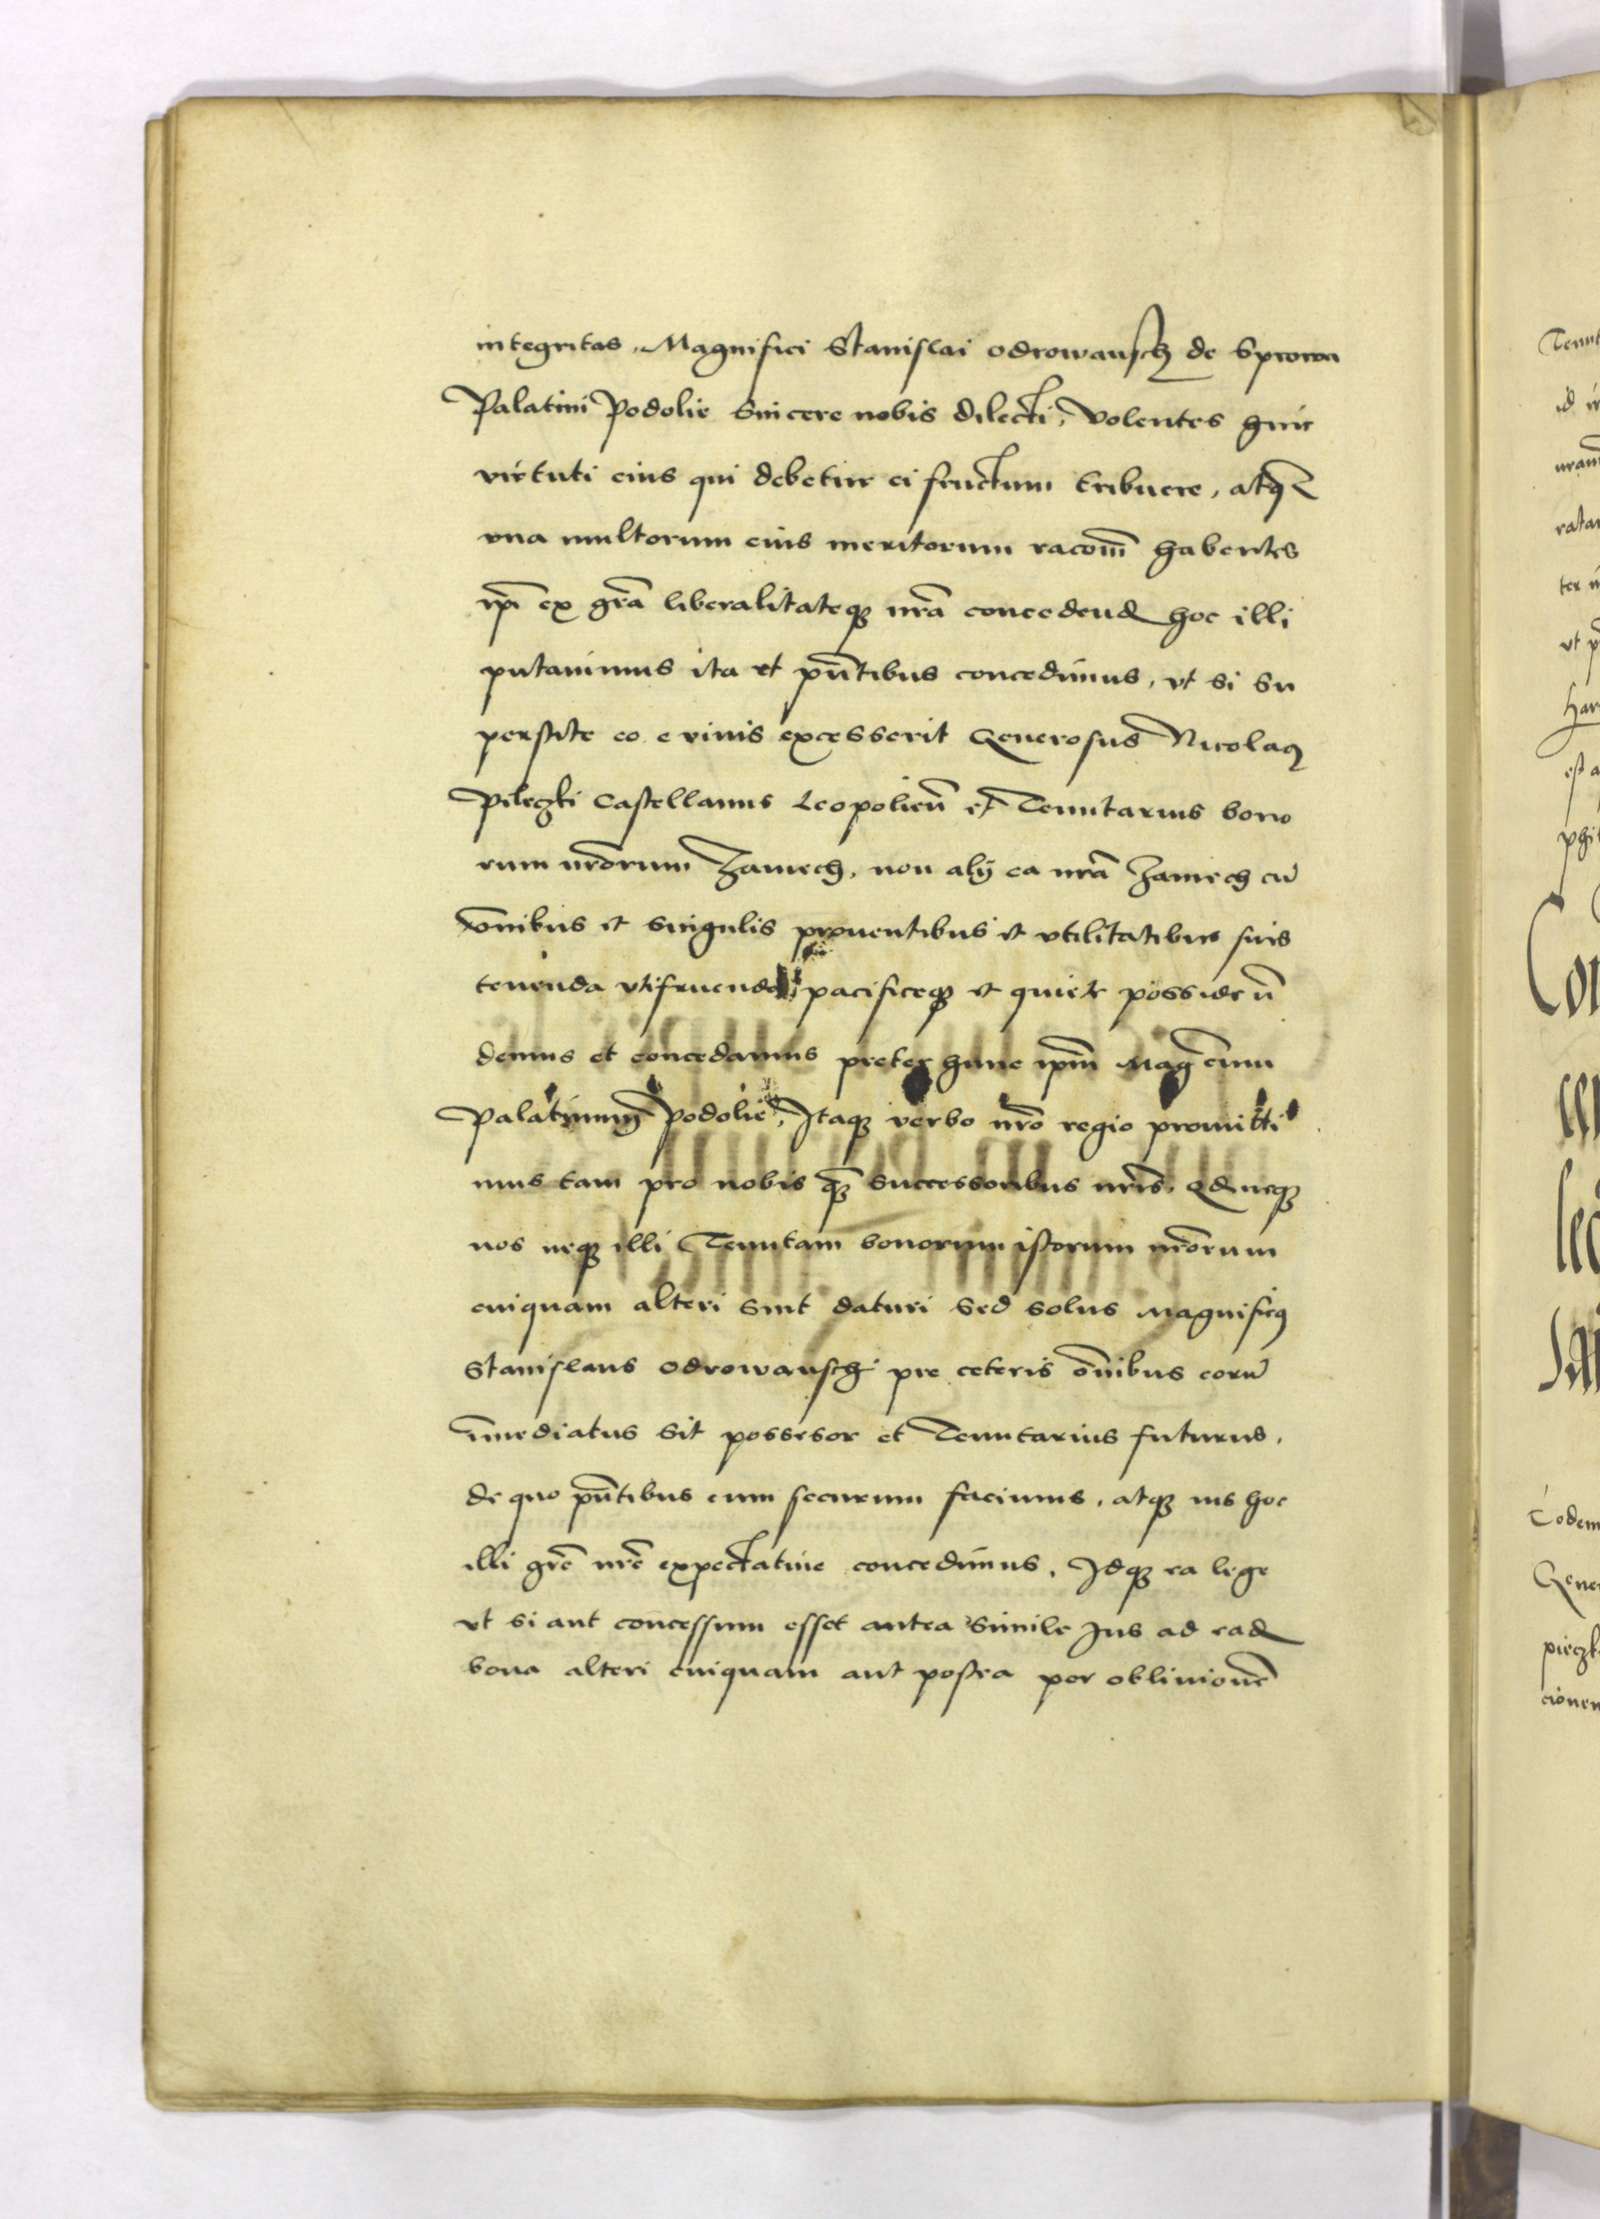 integritas, Magnifici Stanislai odrowansch de Sprowa
Palatini Podolie Sincere nobis dilecti, volentes huic
virtuti eius qui debetur ei fructum tribuere, atq
vna multorum eius meritorum racom̄ habentes
ip̄i ex gr̄a liberalitateq nr̄a concedend hoc illi
putauimus ita et pn̄tibus concedimus, vt si su
perstite eo e viuis excesserit Generosus Nicolaq
Pileczki Castellanus Leopolien̄ et Tenutarius bono
rum nr̄orum Zamech, non alÿ ea nr̄a Zamech cū
om̄nibus et singulis prouentibus et vtilitatibus suis
tenenda vtifruenda, pacificeq et quiete possiden̄
demus et concedamus preter hunc ip̄m Mag cum
Palatinum Podolie, Itaq verbo nr̄o regio promitti
mus tam pro nobis q̄ successoribus nr̄is, Qd neq
nos neq illi Tenutam bonorum istorum nr̄orum
cuiquam alteri sint daturi sed solus Magnificq
Stanislaus odrowansch pre ceteris om̄nibus eorū
im̄mediatus sit possesor et Tenutarius futurus,
de quo pn̄tibus eum securum facimus, atq ius hoc
illi gr̄e nr̄e expectatiue concedimus, Idq ea lege
vt si aut concessum esset antea simile Jus ad ead
bona alteri cuiquam aut postea per obliuionē